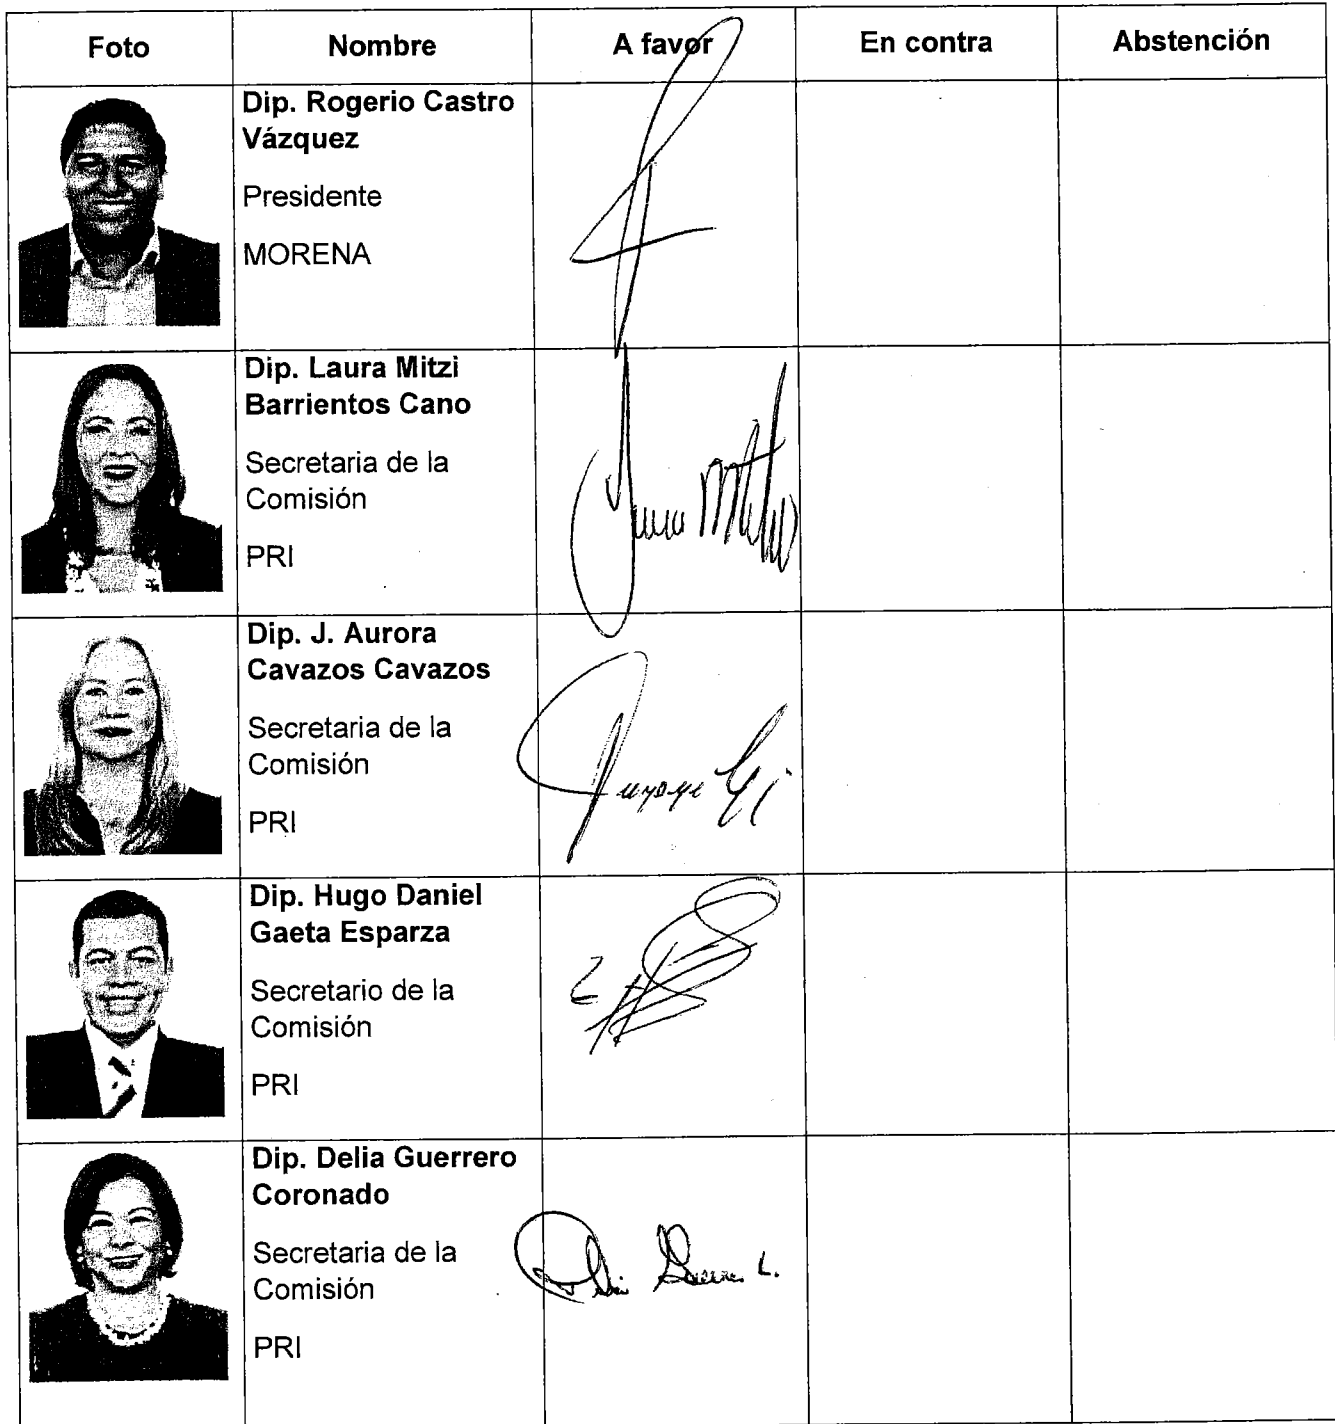 Foto Nombre A favor En contra Abstención
Dip. Rogerio Castro
Vázquez
Presidente
MORENA
Dip. Laura Mitzi
Barrientos Cano
Secretaria de la
Comisión
PRI
Dip. J. Aurora
Cavazos Cavazos
Secretaria de la
Comisión
PRI
Dip. Hugo Daniel
Gaeta Esparza
Secretario de la
Comisión
PRI
Dip. Delia Guerrero
Coronado
Secretaria de la
Comisión
PRI